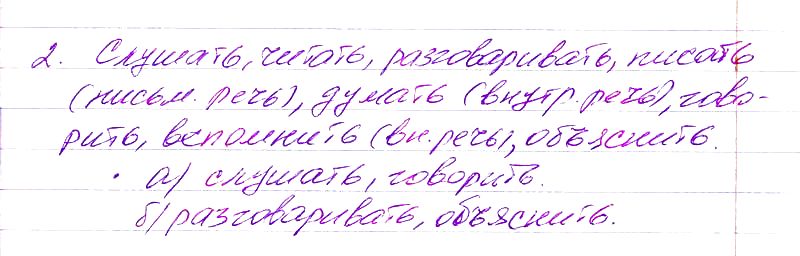 2. Слушать, читать, разговаривать, писать
(письм. речь), думать (внутр. речь), гово-
рить, вспомнить (вн. речь), объяснить.
а) слушать, говорить.
б) разговаривать, объяснить.